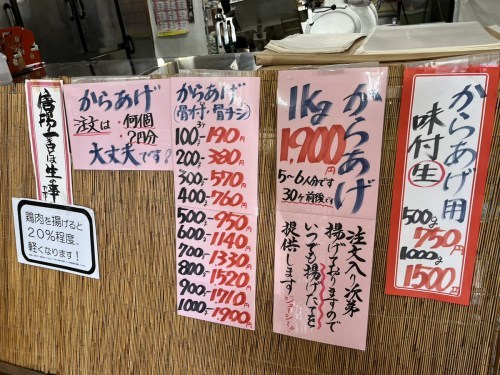 唐揚
からあげ
注文は 何個
?円分
大丈夫です!
鶏肉を揚げると
20%程度、
軽くなります!
からあげ
(骨付・骨ナシ)
100g-190円
200g-380円
300g-570円
400g-760円
500g-950円
600g-1140円
700g-1330円
800g-1520円
900g-1710円
1000g-1900円
からあげ
1Kg
1,900円
5~6人分です
30ケ前後です
注文入り次第
揚げておりますので
いつでも揚げたてを
提供します
からあげ用
味付生
500g
750円
1000g
1500円